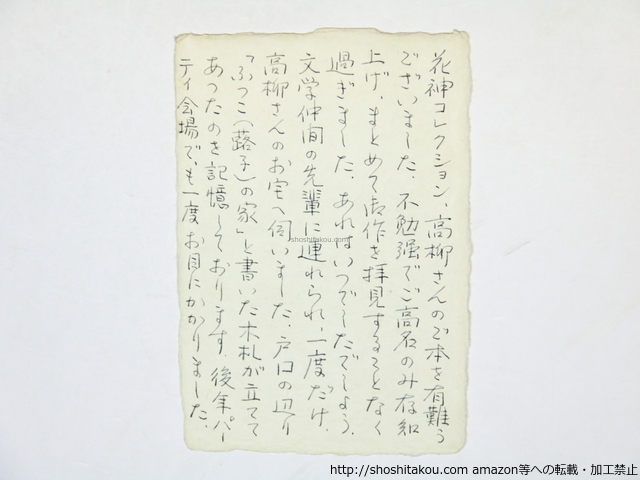 花神コレクション、高柳さんのご本を有難う
ございました。不勉強でご高名のみ存知
上げ、まとめて御作を拝見することなく
過ぎました。あれはいつでしたでしょう、
文学仲間の先輩に連れられ、一度だけ、
高柳さんのお宅へ伺いました。戸口の辺り
「ふっこ(蕗子)の家」と書いた木札が立てて
あったのを記憶しております。後年パー
ティ会場で、も一度お目にかかりました。
shoshitakou.com
http://shoshitakou.com amazon等への転載・加工禁止